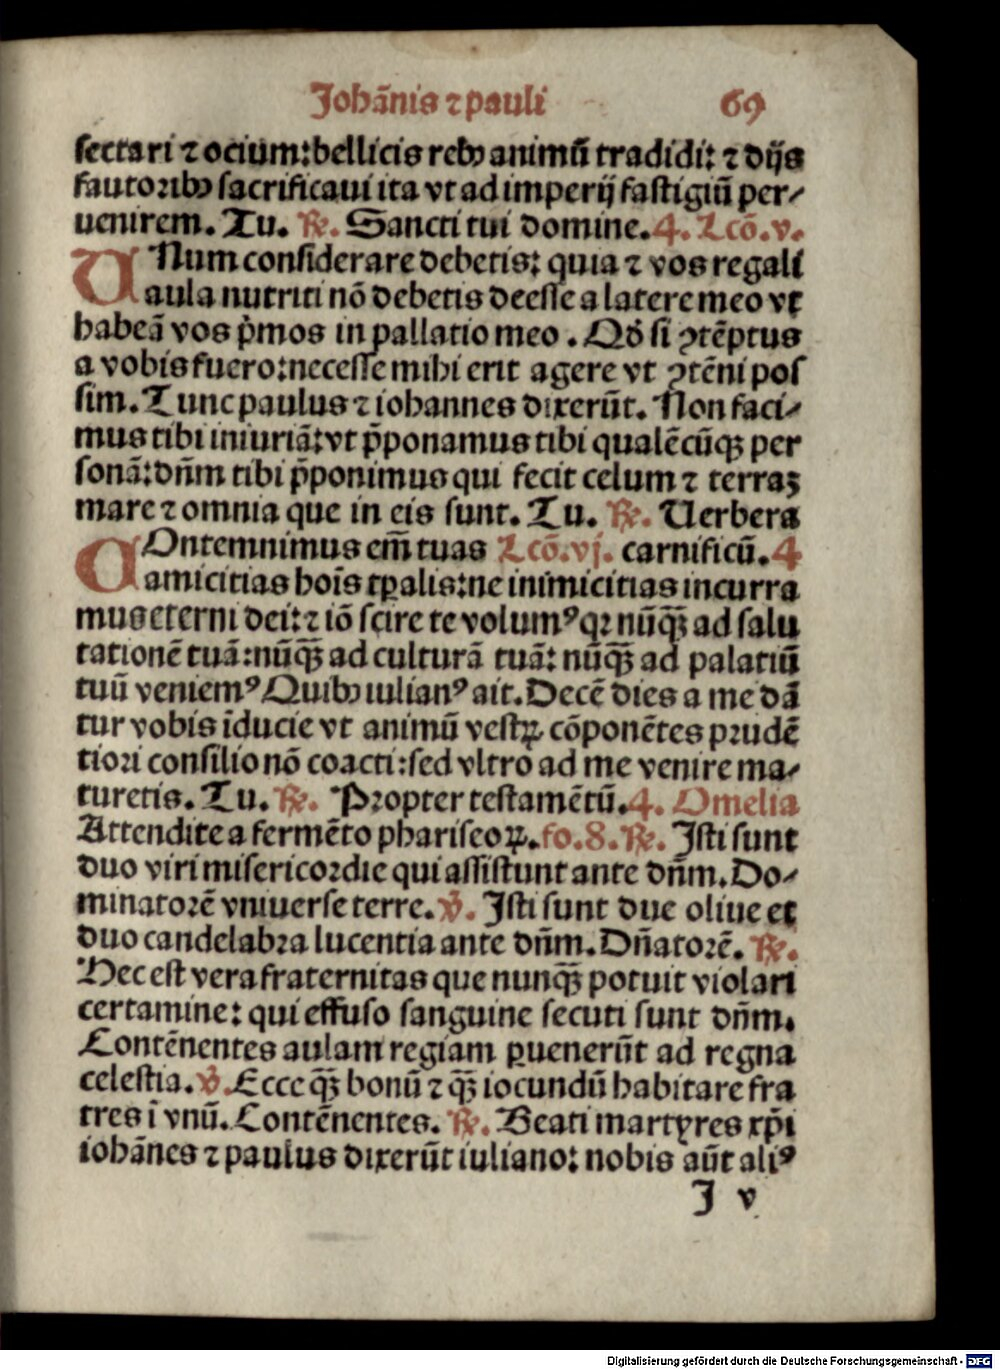 Johānis ⁊ pauli 69
sectari ⁊ ocium: bellicis rebꝰ animū tradidi: ⁊ dijs
fautoribꝰ sacrificaui ita vt ad imperij fastigiū per-
uenirem. Tu. ℟. Sancti tui domine. 4. Lcō. v.
UNum considerare debetis: quia ⁊ vos regali
aula nutriti nō debetis deesse a latere meo vt
habeā vos pͥmos in pallatio meo. Qd̓ si ꝯtēptus
a vobis fuero: necesse mihi erit agere vt ꝯtēni pos
sim. Tunc paulus ⁊ iohannes dixerūt. Non faci-
mus tibi iniuriā: vt p̄ponamus tibi qualēcūqꝫ per
sonā: dn̄m tibi p̄ponimus qui fecit celum ⁊ terraꝫ
mare ⁊ omnia que in eis sunt. Tu. ℟. Uerbera
COntemnimus em̄ tuas Lcō. vj. carnificū. 4
amicitias hoīs tꝑalis: ne inimicitias incurra
mus eterni dei: ⁊ iō scire te volumꝰ qꝛ nūqꝫ̄ ad salu
tationē tuā: nūqꝫ̄ ad culturā tuā: nūqꝫ̄ ad palatiū
tuū veniemꝰ Quibꝰ iulianꝰ ait. Decē dies a me dā
tur vobis īducie vt animū vestꝝ cōponētes prudē
tiori consilio nō coacti: sed vltro ad me venire ma-
turetis. Tu. ℟. Propter testamētū. 4. Omelia
Attendite a fermēto phariseoꝝ. fo. 8. ℟. Isti sunt
duo viri misericordie qui assistunt ante dn̄m. Do-
minatorē vniuerse terre. ℣. Isti sunt due oliue et
duo candelabra lucentia ante dn̄m. Dn̄atorē. ℟.
Hec est vera fraternitas que nunqꝫ̄ potuit violari
certamine: qui effuso sanguine secuti sunt dn̄m.
Contēnentes aulam regiam ꝑuenerūt ad regna
celestia. ℣. Ecce qꝫ̄ bonū ⁊ qꝫ̄ iocundū habitare fra
tres ī vnū. Contēnentes. ℟. Beati martyres xp̄i
iohānes ⁊ paulus dixerūt iuliano: nobis aūt aliꝰ
J v
Digitalisierung gefördert durch die Deutsche Forschungsgemeinschaft - DFG